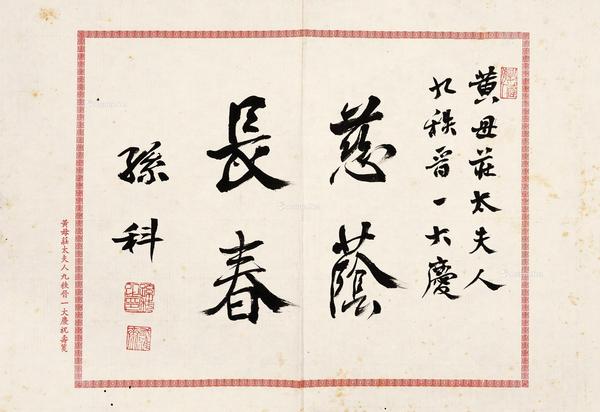 黄母莊太夫人
九秩晉一大慶
慈蔭
長春
孫科
黃母莊太夫人九秩晉一大慶祝壽箋